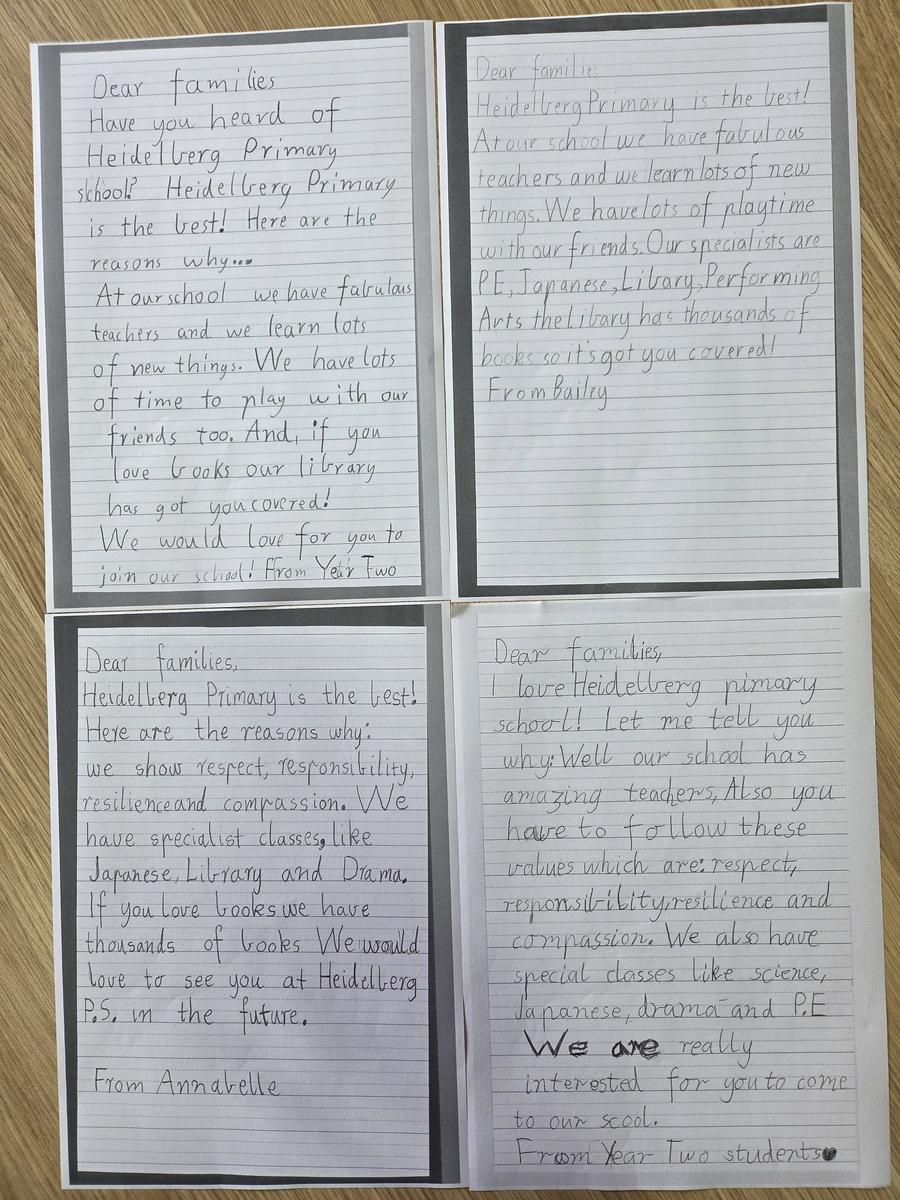 Dear families
Have you heard of
Heidelberg Primary
school? Heidelberg Primary
is the best! Here are the
reasons why...
At our school we have fabulous
teachers and we learn lots
of new things. We have lots
of time to play with our
friends too. And, if you
love books our library
has got you covered!
We would love for you to
join our school! From Year Two
Dear families
Heidelberg Primary is the best!
At our school we have fabulous
teachers and we learn lots of new
things. We have lots of playtime
with our friends. Our specialists are
PE, Japanese, Libary, Performing
Arts the Libary has thousands of
books so it's got you covered!
From Bailey
Dear families,
Heidelberg Primary is the best!
Here are the reasons why:
we show respect, responsibility,
resilience and compassion. We
have specialist classes, like
Japanese, Library and Drama.
If you love books we have
thousands of books We would
love to see you at Heidelberg
P.S. in the future.
From Annabelle
Dear families,
I love Heidelberg pimary
school! Let me tell you
why: Well our school has
amazing teachers, Also you
have to follow these
values which are: respect,
responsibility, resilience and
compassion. We also have
special classes like science,
Japanese, drama and P.E
We are really
interested for you to come
to our scool.
From Year Two students